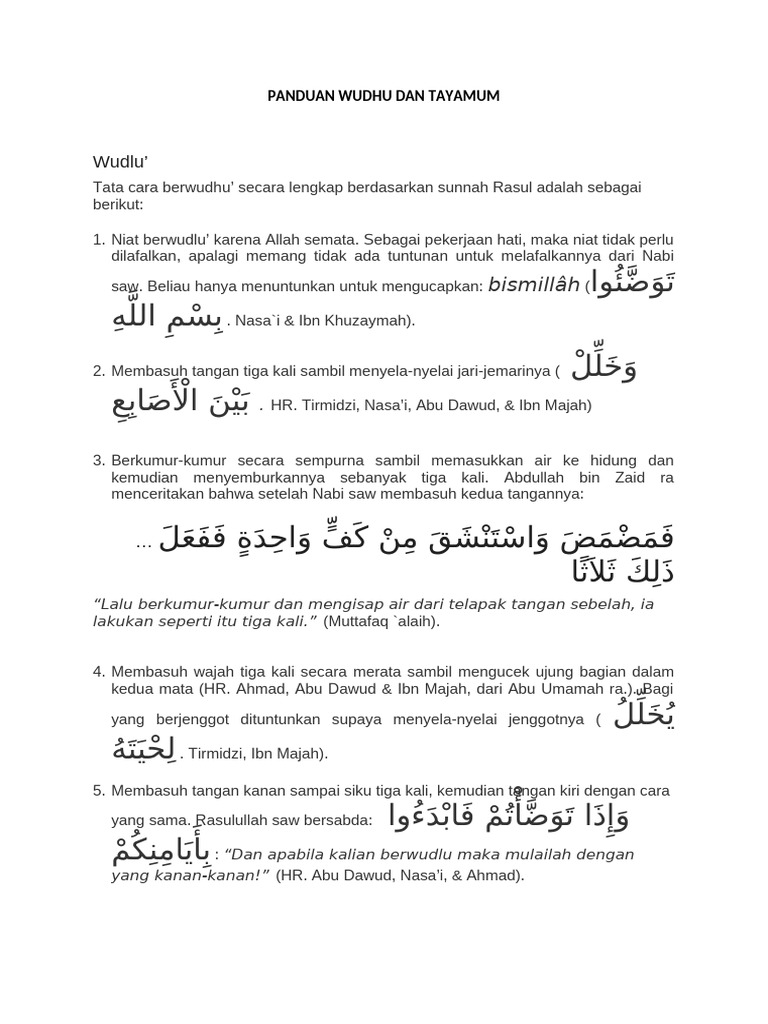 PANDUAN WUDHU DAN TAYAMUM
Wudlu’
Tata cara berwudhu’ secara lengkap berdasarkan sunnah Rasul adalah sebagai
berikut:
1. Niat berwudlu’ karena Allah semata. Sebagai pekerjaan hati, maka niat tidak perlu
dilafalkan, apalagi memang tidak ada tuntunan untuk melafalkannya dari Nabi
saw. Beliau hanya menuntunkan untuk mengucapkan: bismillâh (تَوَضَّئُوا
بِسْمِ اللَّهِ . Nasa`i & Ibn Khuzaymah).
2. Membasuh tangan tiga kali sambil menyela-nyelai jari-jemarinya ( وَخَلِّلْ
بَيْنَ الْأَصَابِعِ . HR. Tirmidzi, Nasa’i, Abu Dawud, & Ibn Majah)
3. Berkumur-kumur secara sempurna sambil memasukkan air ke hidung dan
kemudian menyemburkannya sebanyak tiga kali. Abdullah bin Zaid ra
menceritakan bahwa setelah Nabi saw membasuh kedua tangannya:
فَمَضْمَضَ وَاسْتَنْشَقَ مِنْ كَفٍّ وَاحِدَةٍ فَفَعَلَ ...
ذَلِكَ ثَلاَثًا
“Lalu berkumur-kumur dan mengisap air dari telapak tangan sebelah, ia
lakukan seperti itu tiga kali.” (Muttafaq `alaih).
4. Membasuh wajah tiga kali secara merata sambil mengucek ujung bagian dalam
kedua mata (HR. Ahmad, Abu Dawud & Ibn Majah, dari Abu Umamah ra.). Bagi
yang berjenggot dituntunkan supaya menyela-nyelai jenggotnya ( يُخَلِّلُ
لِحْيَتَهُ . Tirmidzi, Ibn Majah).
5. Membasuh tangan kanan sampai siku tiga kali, kemudian tangan kiri dengan cara
yang sama. Rasulullah saw bersabda: وَإِذَا تَوَضَّأْتُمْ فَابْدَءُوا
بِأَيَامِنِكُمْ : “Dan apabila kalian berwudlu maka mulailah dengan
yang kanan-kanan!” (HR. Abu Dawud, Nasa’i, & Ahmad).